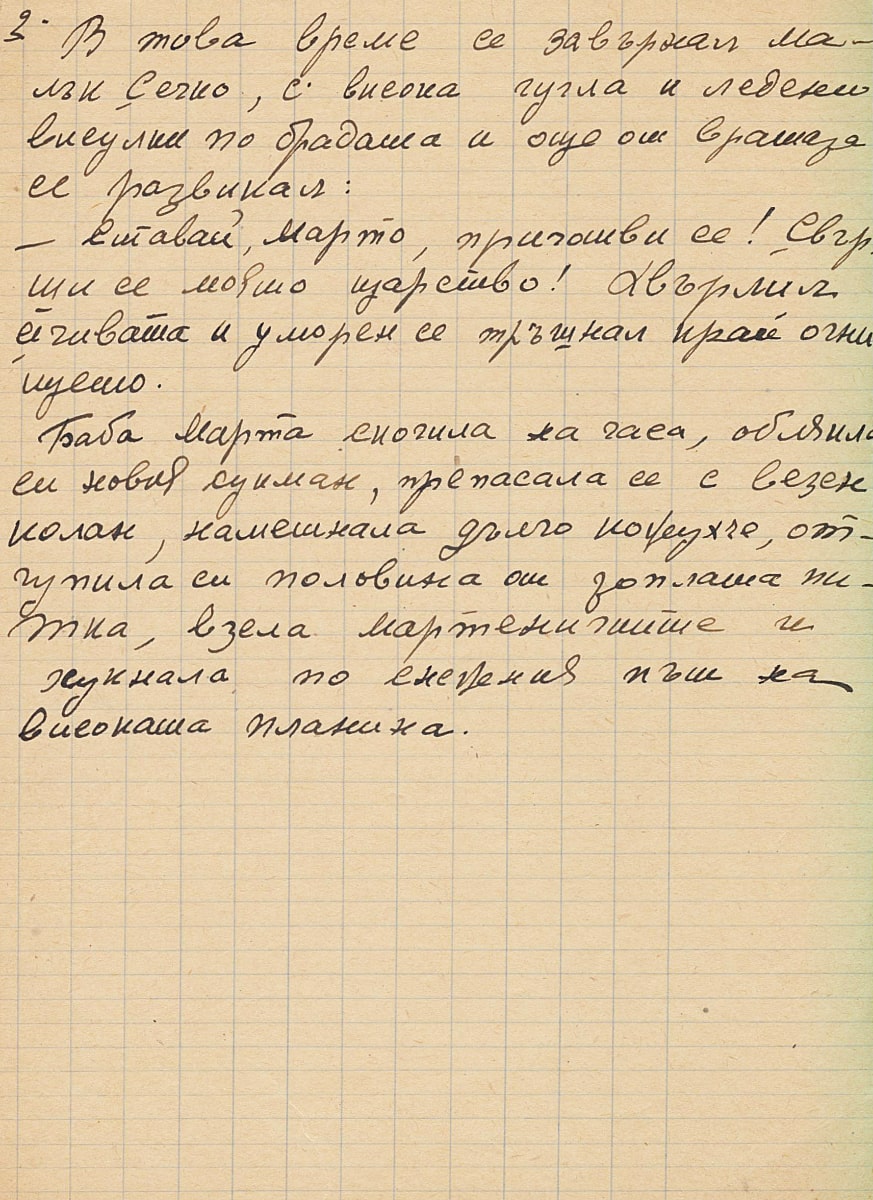 3. В това време се завърнал ма-
лък Сечко, с висока гугла и ледени
висулки по брадата и още от вратата
се развикал:
— Ставай, Марто, приготви се! Свър
ши се моето царство! Хвърлил
ятата и уморен се тръшнал край огни
щето.
Баба Марта скочила на часа, облякла
си новия сукман, препасала се с везен
колан, наметнала дълго кожухче, от-
чупила си половина от топлата пи-
тка, взела мартеничките и
хукнала по снежния път на
високата планина.